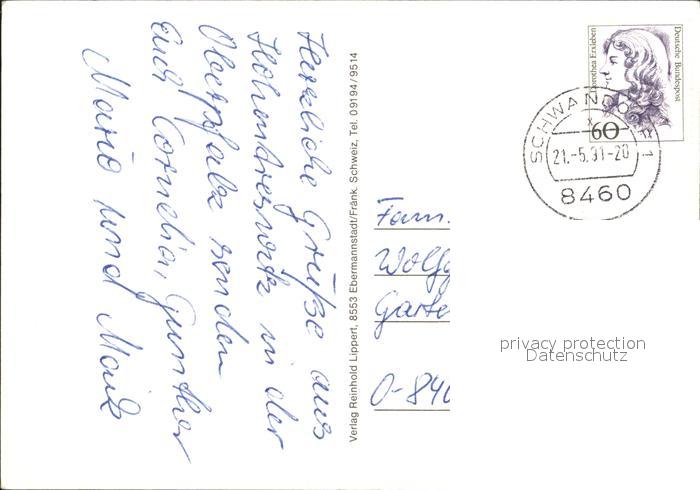 Herzliche Grüße aus
Hohentreswitz in der
Oberpfalz senden
Euch Cornelia, Gunther
Mario und Maik
Verlag Reinhold Lippert, 8553 Ebermannstadt/Fränk. Schweiz, Tel. 09194/9514
Dorothea Erxleben
Deutsche Bundespost
60
SCHWANDORF 1
21.-5.91-20
8460
Fam.
Wolfg
Garte
O-840
privacy protection
Datenschutz